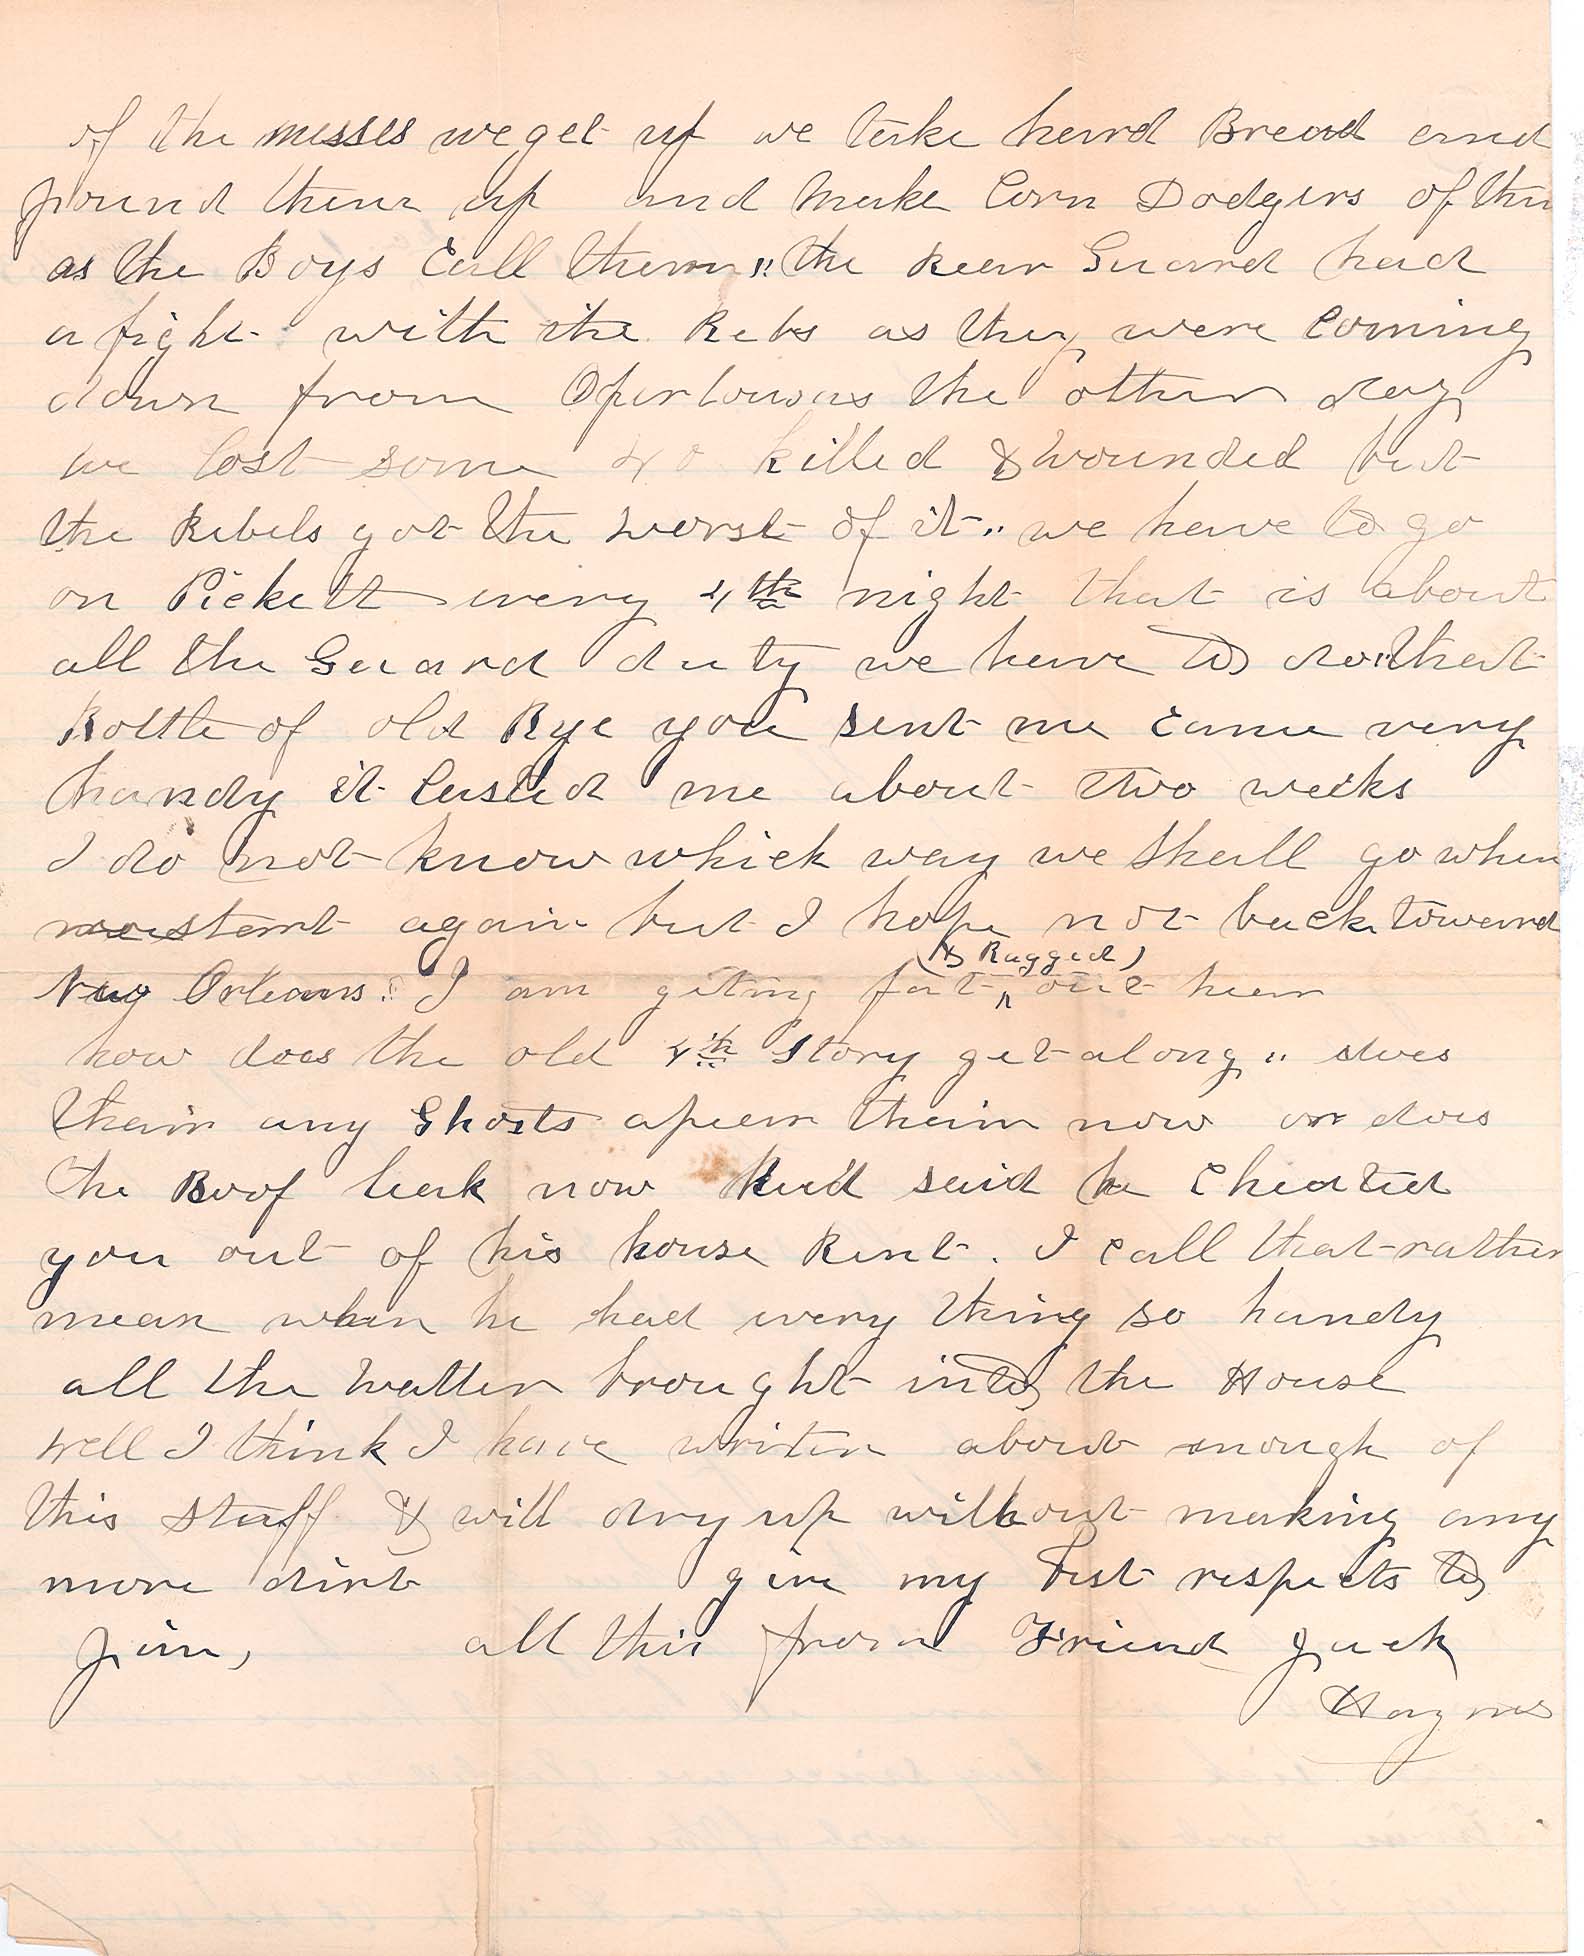 of the messes we get up we take hard Bread and
pound them up and make Corn Dodgers of them
as the Boys Call them,, the Rear Guard had
a fight with the Rebs as they were Coming
down from Oparlousas the other day
we lost some 40 killed & wounded but
the Rebels got the worst of it,, we have to go
on Pickett every 4th night that is about
all the Guard duty we have to do,, that
Bottle of old Rye you sent me Came very
handy it lasted me about two weeks
I do not know which way we shall go when
start again but I hope not back toward
New Orleans,, I am geting fat (& Ragged) out hear
how does the old 4th Story get along,, does
thair any Ghosts apear thair now or does
the Roof leak now said he Cheated
you out of his house Rent. I call that rather
mean when he had every thing so handy
all the Watter brought into the House
well I think I have writen about enough of
this stuff & will dry up without making any
more dirt give my Best respects to
Jim, all this from Friend Jack
Haynes